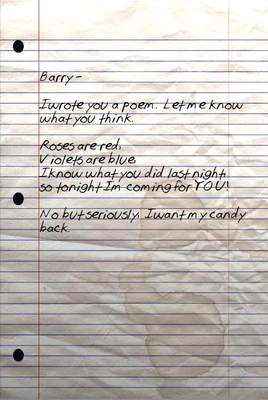 Barry-
I wrote you a poem. Let me know
what you think.
Roses are red,
Violets are blue
I know what you did last night,
so tonight Im coming for YOU!
No but seriously, I want my candy
back.